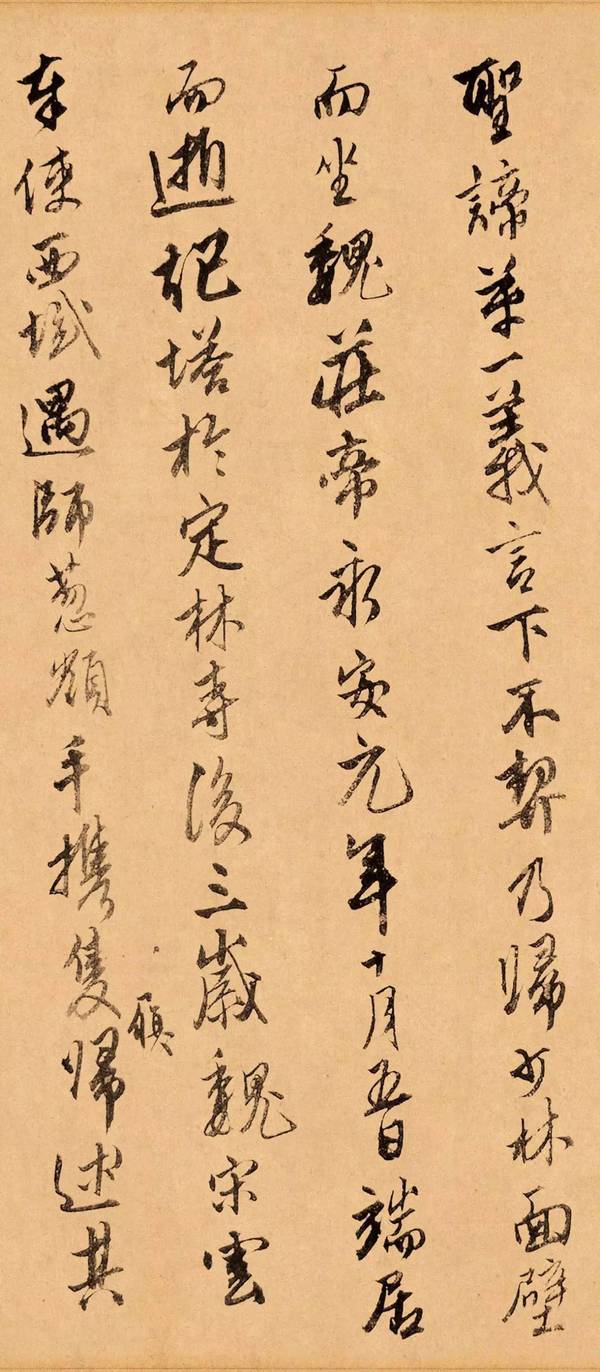 聖諦第一義言下不契乃歸少林面壁
而坐魏莊帝永安元年十月五日端居
而逝起塔於定林寺後三歲魏宋雲
履
奉使西域遇師葱嶺手攜隻歸述其